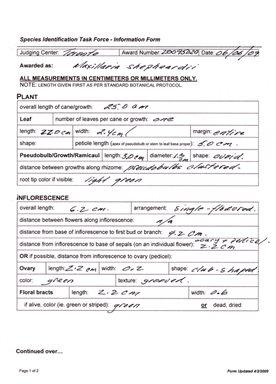 Species Identification Task Force - Information Form
Judging Center: Toronto Award Number 20095620 Date: 06/06/09
Awarded as: Maxillaria shepheardii
ALL MEASUREMENTS IN CENTIMETERS OR MILLIMETERS ONLY.
NOTE: LENGTH GIVEN FIRST AS PER STANDARD BOTANICAL PRACTICE.
PLANT
overall length of cane/growth: 25.0 cm
Leaf number of leaves per cane or growth: one
length: 22.0 cm width: 2.4 cm margin: entire
shape: petiole length (apex of pseudobulb or stem to leaf base proper): 5.0 cm
Pseudobulb/Growth/Ramicaul length: 3.0 cm diameter: shape: ovoid.
distance between growths along rhizome: pseudobulbs clustered.
root tip color if visible: light green
INFLORESCENCE
overall length: 6.2 cm. arrangement: single-flowered.
distance between flowers along inflorescence: n/a
distance from base of inflorescence to first bud or branch: 4.2 cm.
distance from inflorescence to base of sepals (on an individual flower): ovary + pedicel / 2.2 cm
OR if possible, distance from inflorescence to ovary (pedicel):
Ovary length: 2.2 cm width: 0.2 shape: club-shaped
color: green texture: grooved.
Floral bracts length: 2.2 cm width: 0.6
if alive, color (ie. green or striped): green or dead, dried
Continued over…
Page 1 of 2 Form Updated 4/2/2009